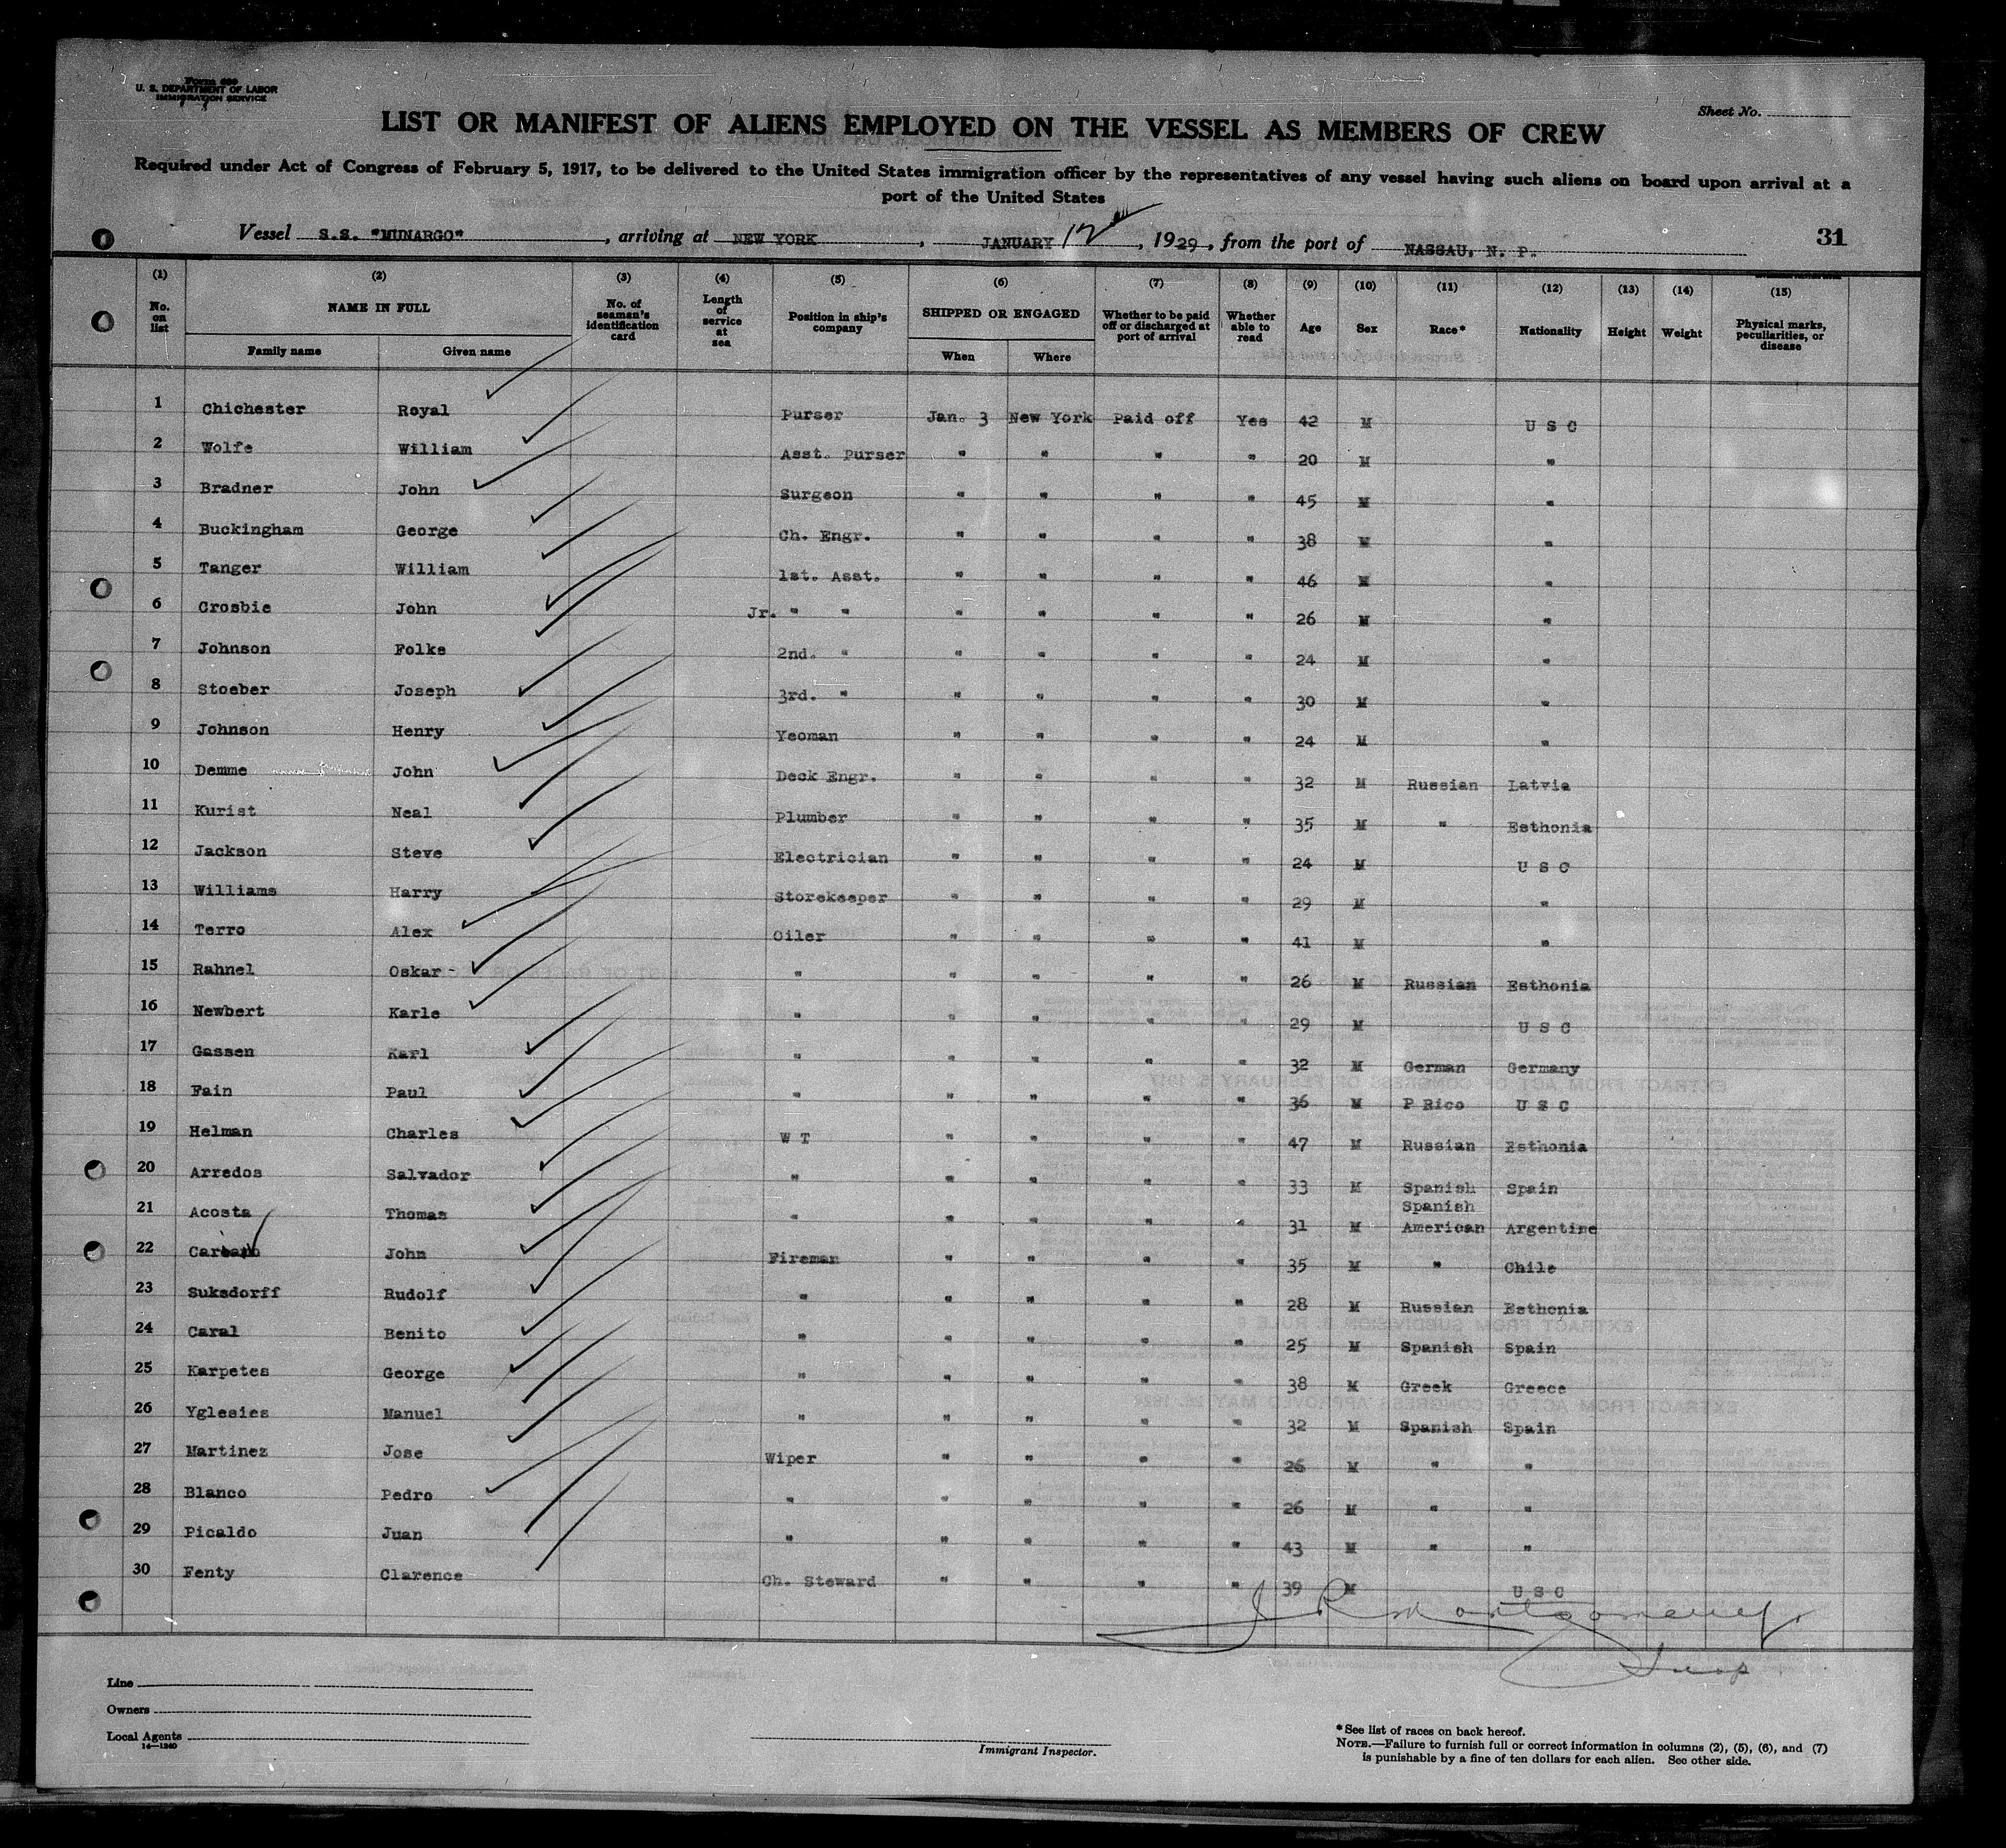 Form 689
U. S. DEPARTMENT OF LABOR
IMMIGRATION SERVICE
Sheet No.
LIST OR MANIFEST OF ALIENS EMPLOYED ON THE VESSEL AS MEMBERS OF CREW
Required under Act of Congress of February 5, 1917, to be delivered to the United States immigration officer by the representatives of any vessel having such aliens on board upon arrival at a
port of the United States
Vessel S.S. "MUNARGO", arriving at NEW YORK, JANUARY 12, 1929, from the port of NASSAU, N. P. 31
(1) (2) (3) (4) (5) (6) (7) (8) (9) (10) (11) (12) (13) (14) (15)
No. on list NAME IN FULL Family name Given name No. of seaman's identification card Length of service at sea Position in ship's company SHIPPED OR ENGAGED When Where Whether to be paid off or discharged at port of arrival Whether able to read Age Sex Race* Nationality Height Weight Physical marks, peculiarities, or disease
1 Chichester Royal Purser Jan. 3 New York Paid off Yes 42 M U S C
2 Wolfe William Asst. Purser " " " " 20 M "
3 Bradner John Surgeon " " " " 45 M "
4 Buckingham George Ch. Engr. " " " " 38 M "
5 Tanger William 1st. Asst. " " " " 46 M "
6 Crosbie John Jr. " " " " " " 26 M "
7 Johnson Folke 2nd. " " " " " 24 M "
8 Stoeber Joseph 3rd. " " " " " 30 M "
9 Johnson Henry Yeoman " " " " 24 M "
10 Demme John Deck Engr. " " " " 32 M Russian Latvia
11 Kurist Neal Plumber " " " " 35 M " Esthonia
12 Jackson Steve Electrician " " " " 24 M U S C
13 Williams Harry Storekeeper " " " " 29 M "
14 Terro Alex Oiler " " " " 41 M "
15 Rahnel Oskar - " " " " " 26 M Russian Esthonia
16 Newbert Karle " " " " " 29 M U S C
17 Gassen Karl " " " " " 32 M German Germany
18 Fain Paul " " " " " 36 M P Rico U S C
19 Helman Charles W T " " " " 47 M Russian Esthonia
20 Arredos Salvador " " " " " 33 M Spanish Spain
21 Acosta Thomas " " " " " 31 M Spanish American Argentine
22 John Fireman " " " " 35 M " Chile
23 Suksdorff Rudolf " " " " " 28 M Russian Esthonia
24 Caral Benito " " " " " 25 M Spanish Spain
25 Karpetes George " " " " " 38 M Greek Greece
26 Yglesies Manuel " " " " " 32 M Spanish Spain
27 Martinez Jose Wiper " " " " 26 M " "
28 Blanco Pedro " " " " " 26 M " "
29 Picaldo Juan " " " " " 43 M " "
30 Fenty Clarence Ch. Steward " " " " 39 M U S C
J R Montgomery
Insp
Line
Owners
Local Agents
14—1240
Immigrant Inspector.
* See list of races on back hereof.
NOTE.—Failure to furnish full or correct information in columns (2), (5), (6), and (7)
is punishable by a fine of ten dollars for each alien. See other side.